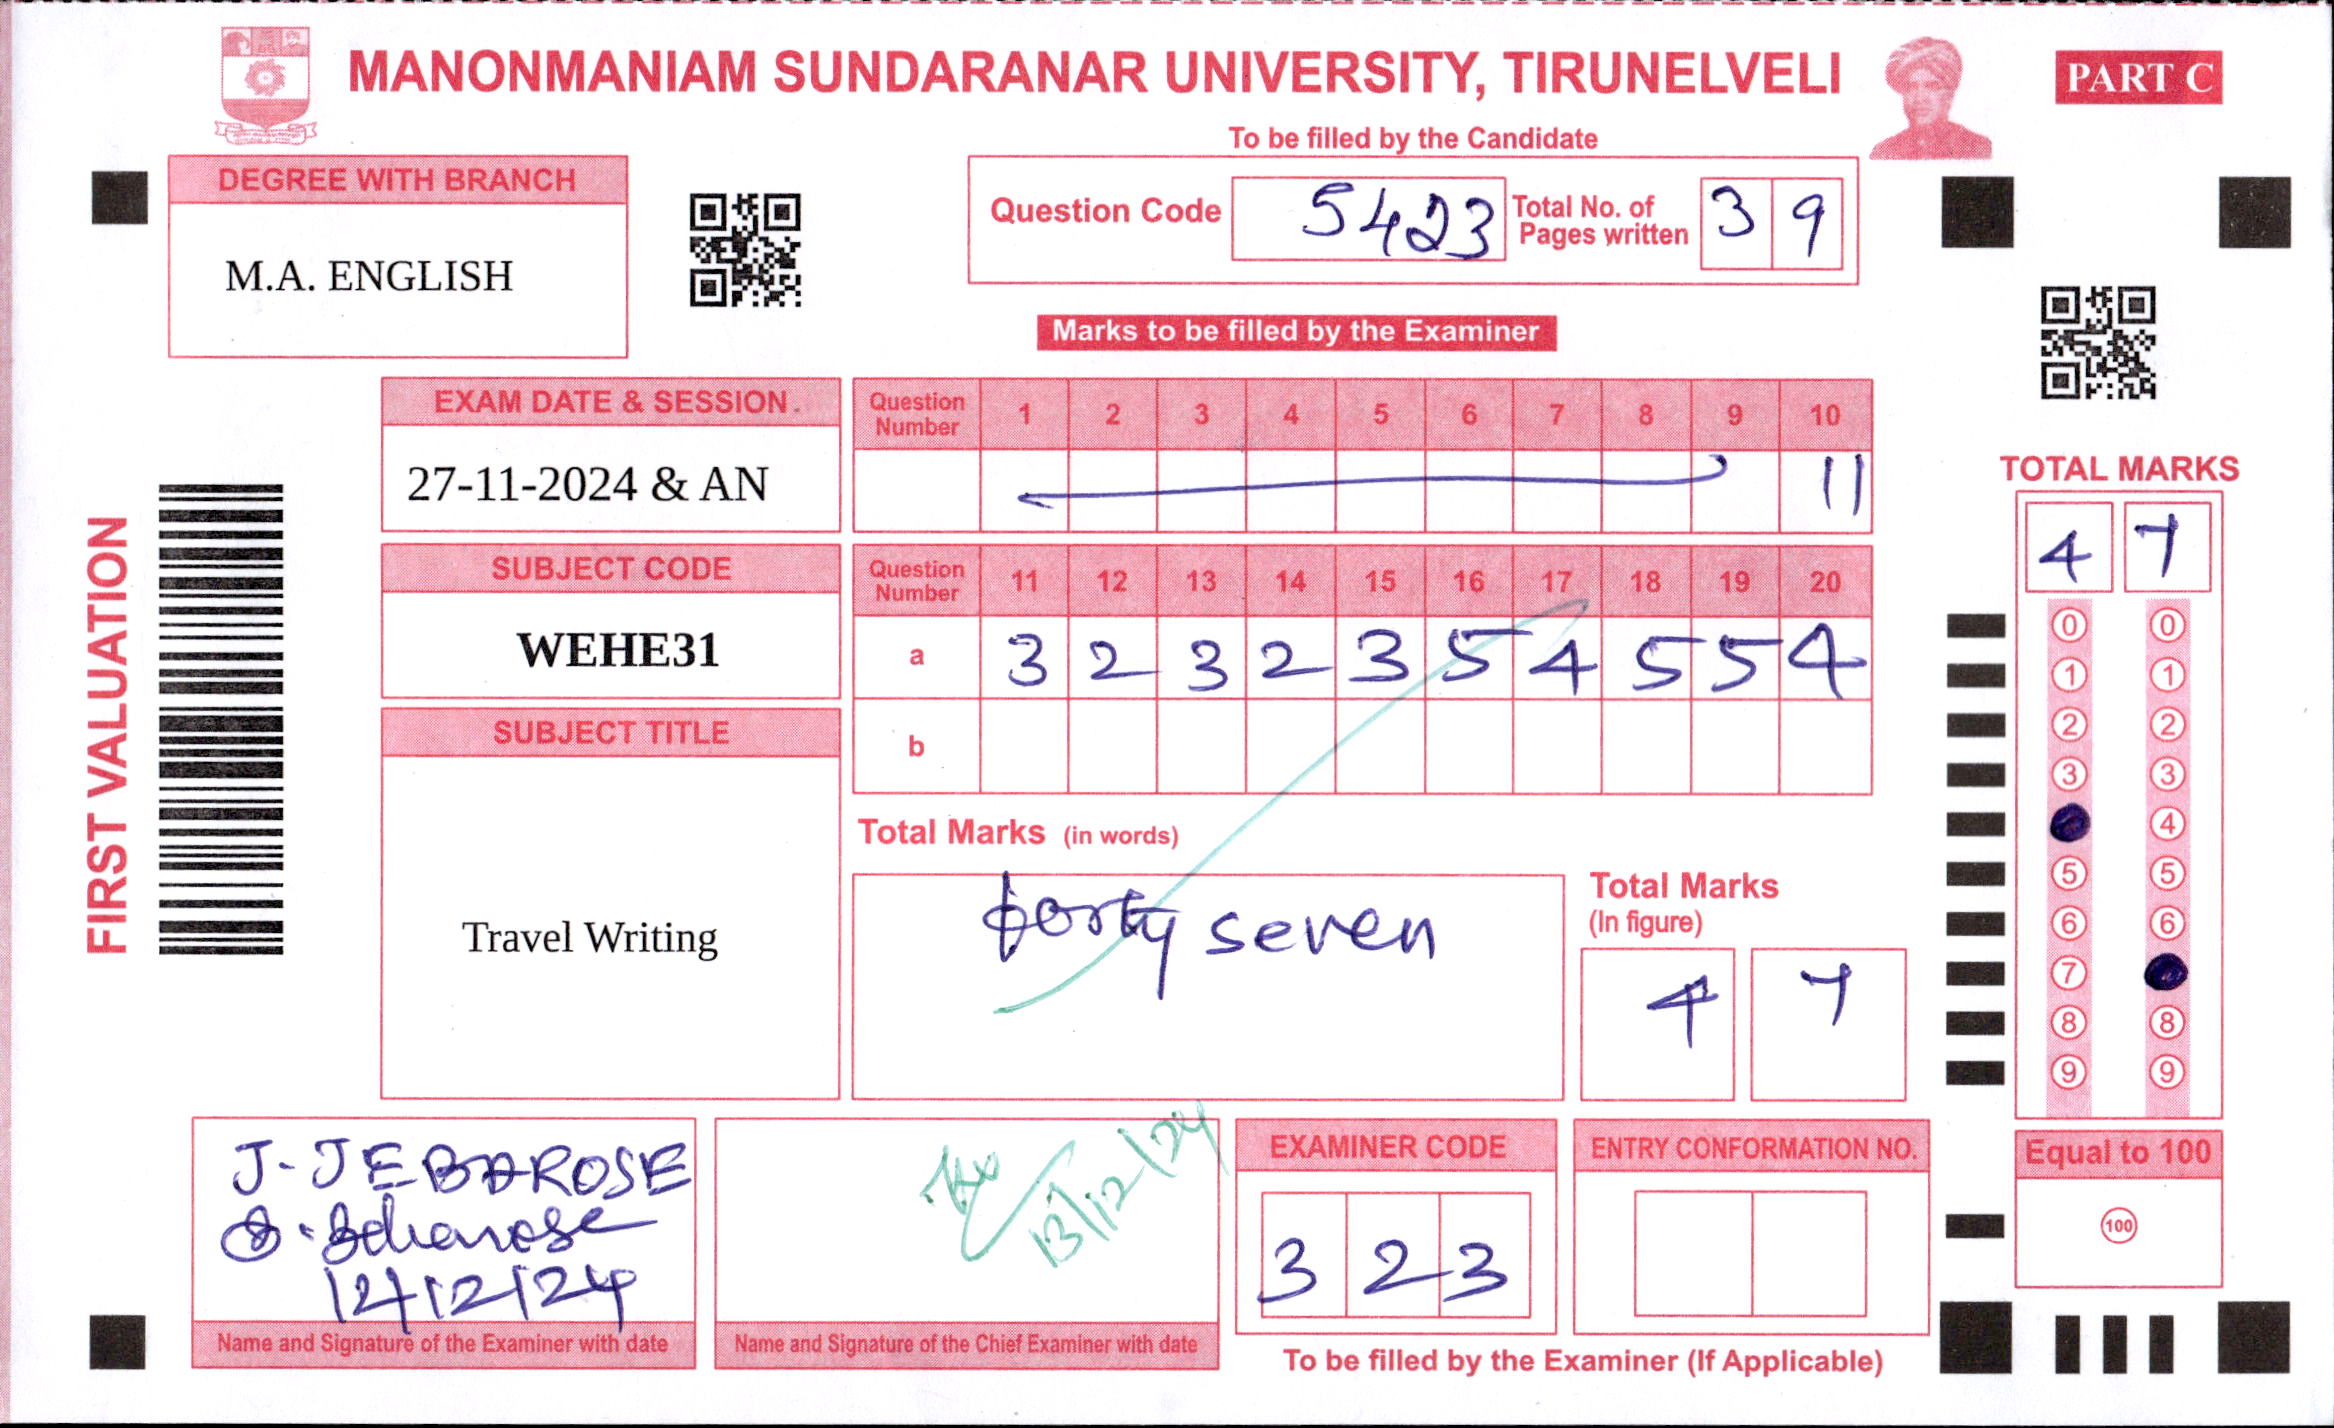 MANONMANIAM SUNDARANAR UNIVERSITY, TIRUNELVELI
PART C
To be filled by the Candidate
DEGREE WITH BRANCH
M.A. ENGLISH
Question Code 5423 Total No. of Pages written 3 9
Marks to be filled by the Examiner
EXAM DATE & SESSION
27-11-2024 & AN
Question Number 1 2 3 4 5 6 7 8 9 10
11
SUBJECT CODE
WEHE31
Question Number 11 12 13 14 15 16 17 18 19 20
a 3 2 3 2 3 5 4 5 5 4
b
SUBJECT TITLE
Travel Writing
FIRST VALUATION
Total Marks (in words)
forty seven
Total Marks
(In figure)
4 7
TOTAL MARKS
4 7
0 0
1 1
2 2
3 3
4
5 5
6 6
7
8 8
9 9
Equal to 100
100
J. JEBAROSE
12/12/24
Name and Signature of the Examiner with date
13/12/24
Name and Signature of the Chief Examiner with date
EXAMINER CODE
3 2 3
ENTRY CONFORMATION NO.
To be filled by the Examiner (If Applicable)